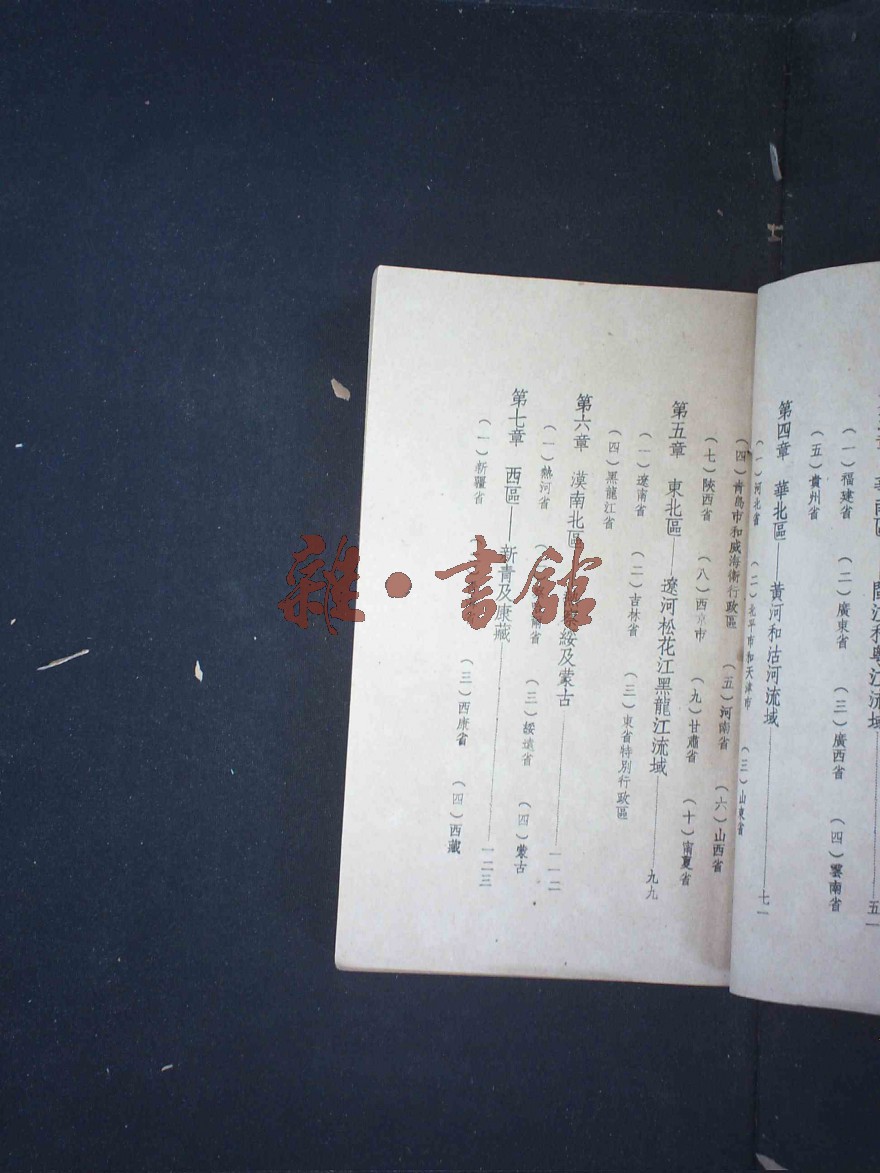 區 閩江和粵江流域 五一
(一)福建省 (二)廣東省 (三)廣西省 (四)雲南省
(五)貴州省
第四章 華北區——黃河和沽河流域 七一
(一)河北省 (二)北平市和天津市 (三)山東省
(四)青島市和威海衛行政區 (五)河南省 (六)山西省
(七)陝西省 (八)西京市 (九)甘肅省 (十)甯夏省
第五章 東北區——遼河松花江黑龍江流域 九九
(一)遼甯省 (二)吉林省 (三)東省特別行政區
(四)黑龍江省
第六章 漠南北區 綏及蒙古 一一二
(一)熱河省 爾省 (三)綏遠省 (四)蒙古
第七章 西區——新青及康藏 一二三
(一)新疆省 (三)西康省 (四)西藏
雜·書館